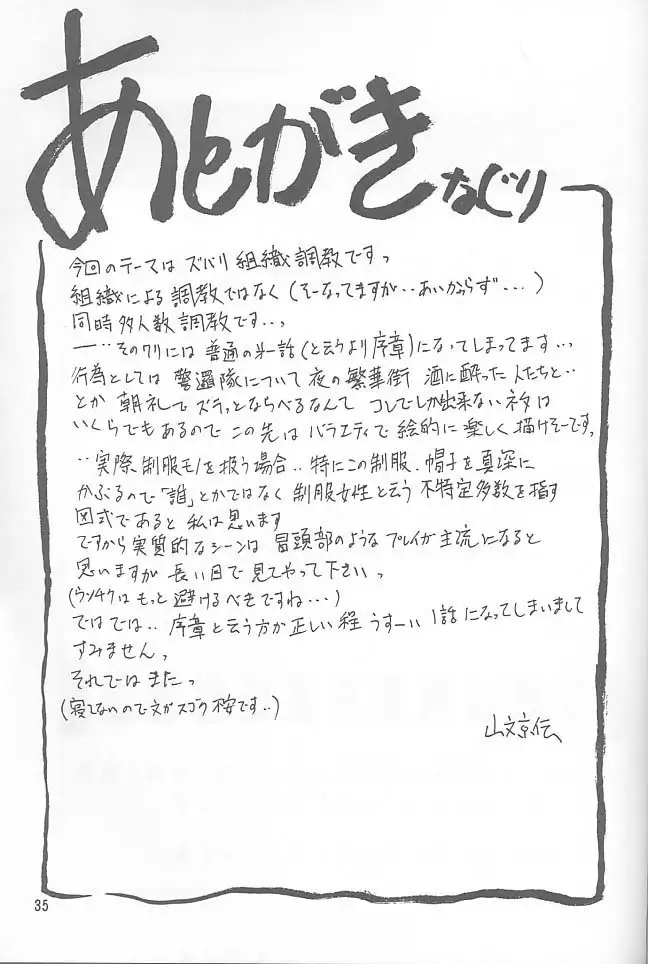 あとがき なぐり
今回のテーマは ズバリ 組織調教ですっ
組織による調教ではなく(そーなってますが‥あいかわらず…)
同時多人数調教です…っ
―‥そのワリには 普通の第一話(と云うより序章)になってしまってます…、
行為としては 警邏隊について 夜の繁華街 酒に酔った人たちと‥
とか 朝礼で ズラッとならべるなんて コレでしか出来ないネタは
いくらでもあるので この先は バラエティで絵的に楽しく描けそーです。
‥実際 制服モノを扱う場合‥特にこの制服.帽子を真深に
かぶるので「誰」とかではなく 制服女性と云う 不特定多数を指す
図式であると 私は思います
ですから実質的なシーンは 冒頭部のような プレイが主流になると
思いますが 長い目で見てやって下さいっ
(ウンチクは もっと避けるべきですね…)
ではでは‥序章と云う方が正しい程 うすーい 1話になってしまいまして
すみません。
それでは またっ
(寝てないので文がスゴク不安です‥)
山文京伝
35